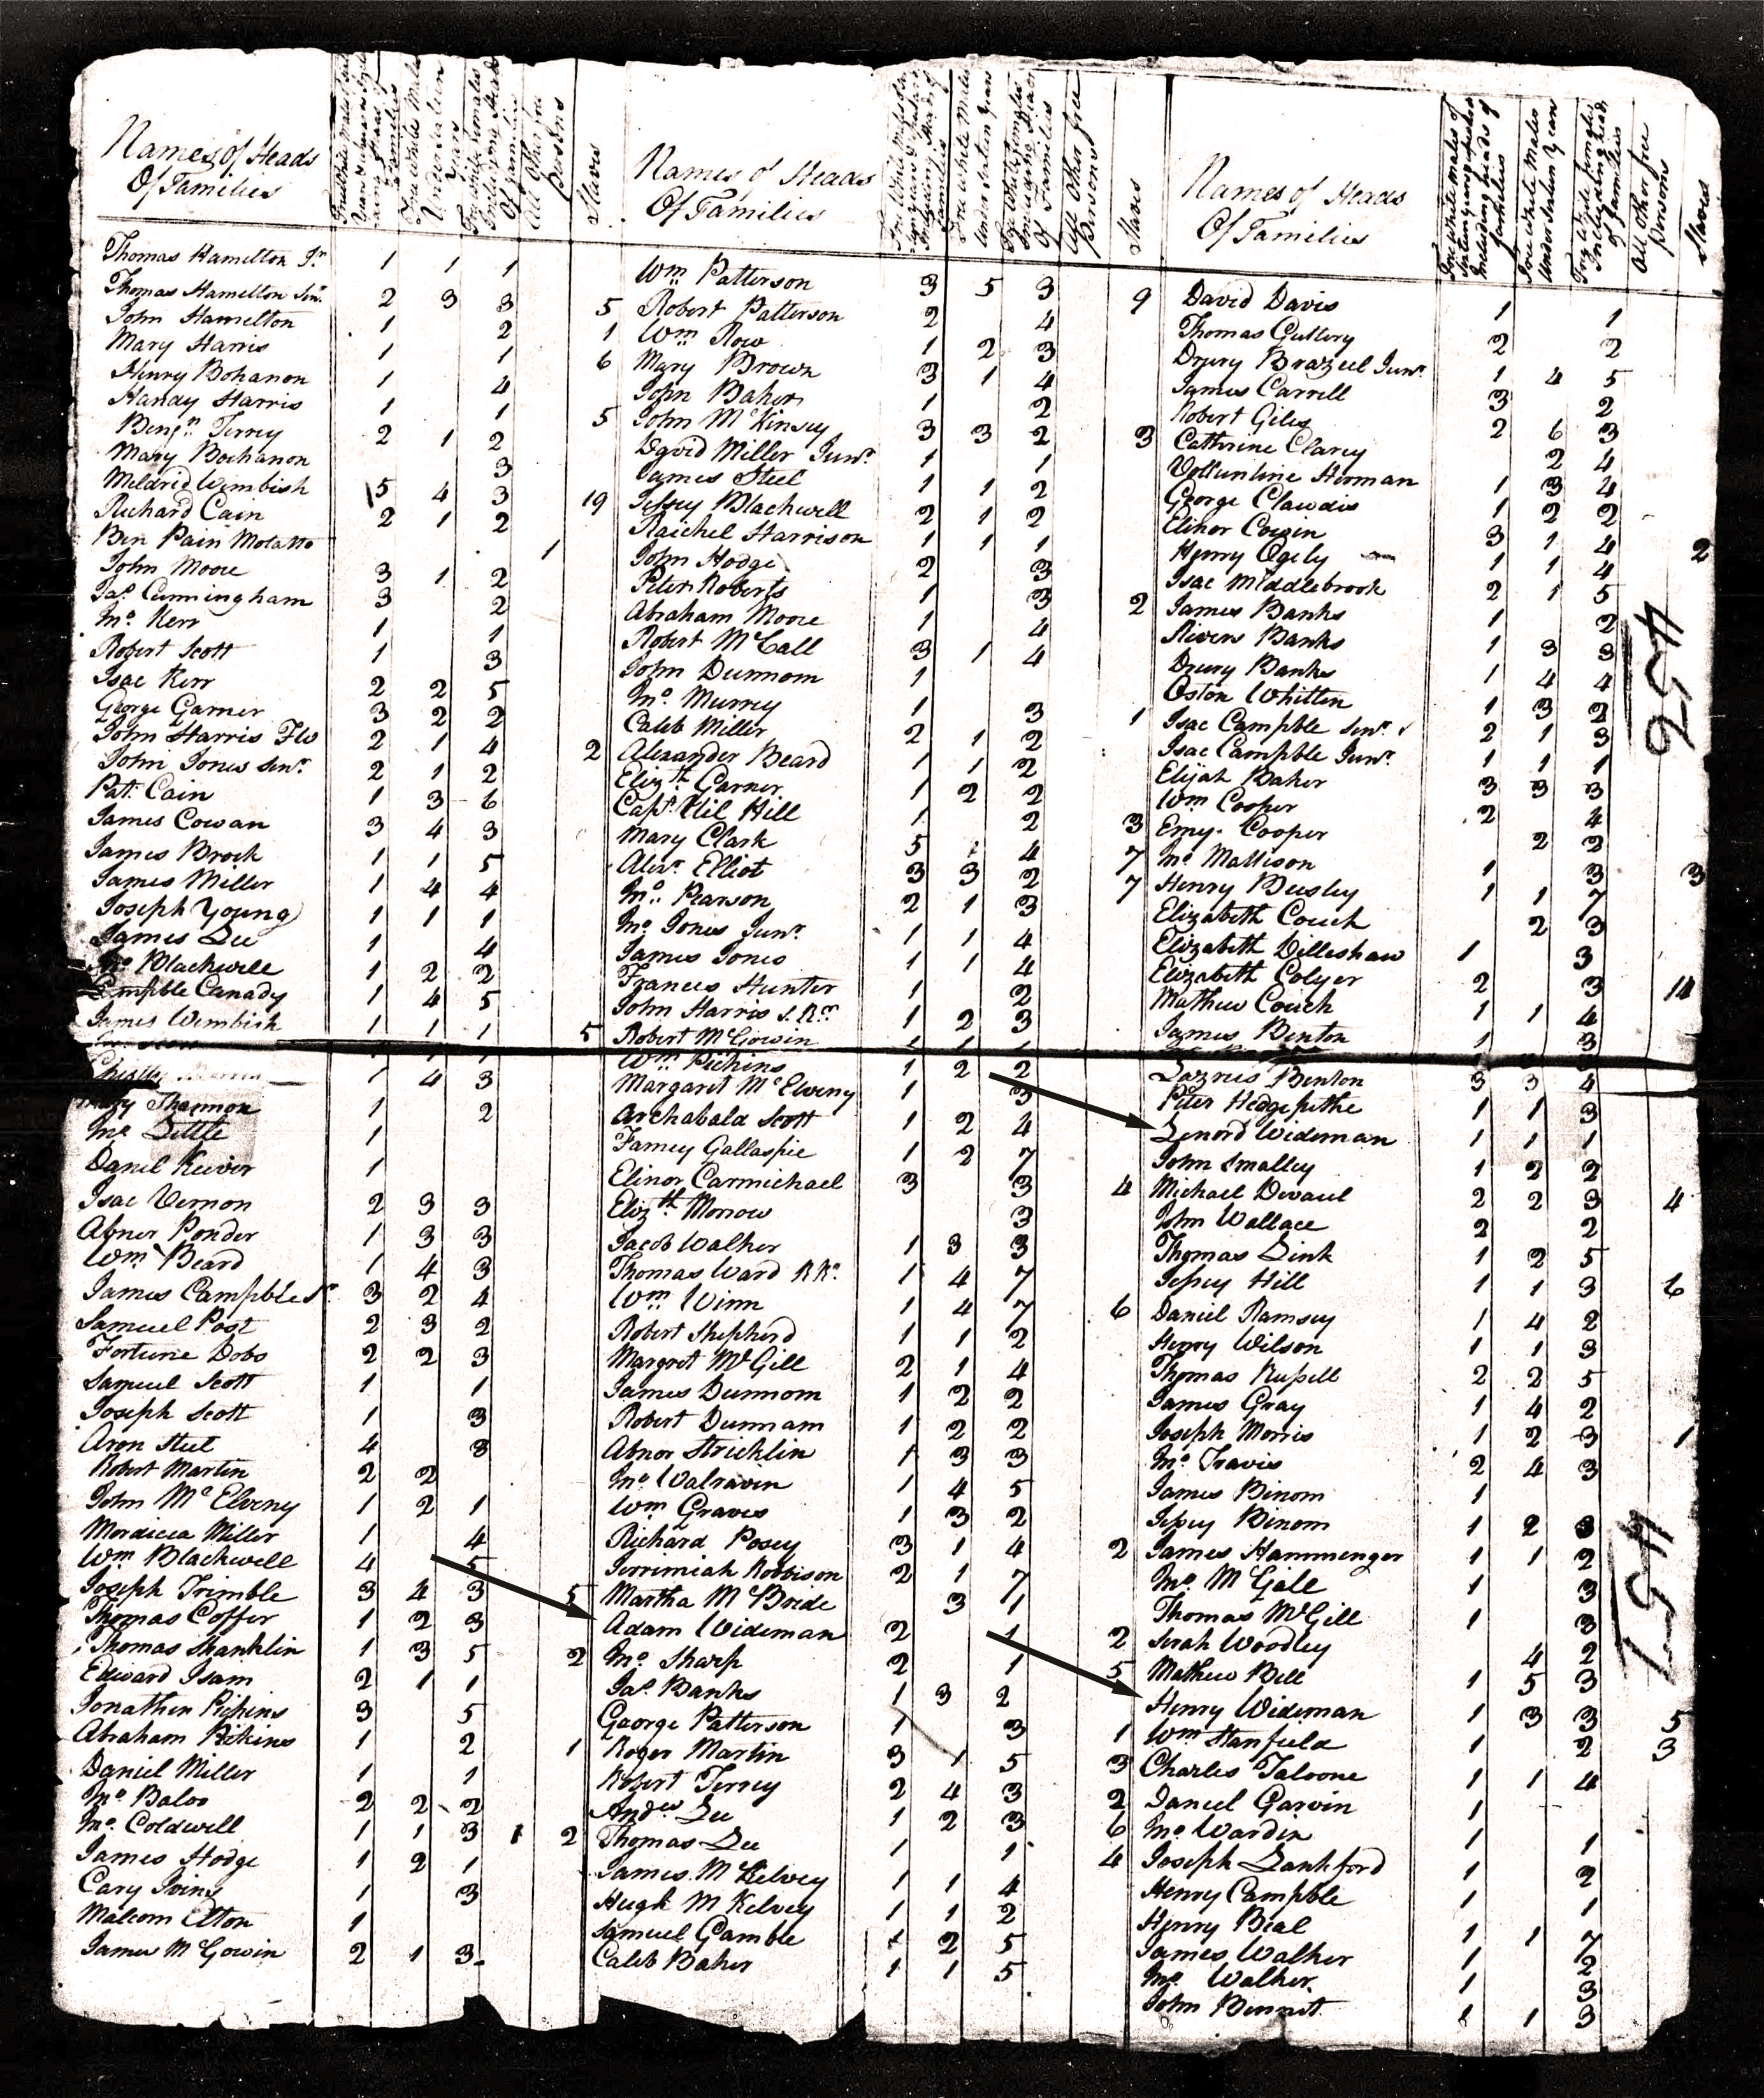 Names of Heads Of Families
Free White Males Under Sixteen Years
Free White Females Including Heads Of Families
All Other free Persons
Slaves
Thomas Hamilton Jr 1 1 1
Thomas Hamelton Senr 2 3 3 5
John Hamelton 1 2 1
Mary Harris 1 1 6
Henry Bohanon 1 4
Handy Harris 1 1 5
Benjn Terrey 2 1 2
Mary Bochanon 3
Meldrid Wimbish 5 4 3 19
Richard Cain 2 1 2
Ben Pain Molatto 1
John Moore 3 1 2
Jas Cunningham 3 2
Jno Kerr 1 1
Robert Scott 1 3
Isac Kerr 2 2 5
George Garner 3 2 2
John Harris Flo 2 1 4 2
John Jones Senr 2 1 2
Pat. Cain 1 3 6
James Cowan 3 4 3
James Brock 1 1 5
James Miller 1 4 4
Joseph Young 1 1 1
James Lee 1 4
Jno Blackwell 1 2 2
Campble Canady 1 4 5
James Wimbish 1 1 1 5
1 4 3
Thannon 1 2
Jno Little 1
Daniel Keiver 1
Isac Vernon 2 3 3
Abner Ponder 1 3 3
Wm Beard 1 4 3
James Campble Sr 3 2 4
Samuel Post 2 3 2
Fortune Dobs 2 2 3
Samuel Scott 1 1
Joseph Scott 1 3
Aron Steel 4 3
Robert Martin 2 2
John McElveny 1 2 1
Mordicia Miller 1 4
Wm Blackwell 4 5
Joseph Trimble 3 4 3 5
Thomas Coffer 1 2 3
Thomas Shanklin 1 3 5 2
Edward Isam 2 1 1
Jonathen Pickins 3 5
Abraham Pickins 1 2 1
Daniel Miller 1 1
Jno Baloo 2 2 2
Jno Coldwell 1 1 3 1 2
James Hodge 1 2 1
Cary Ivins 1 3
Malcom Elton 1
James McGowin 2 1 3
Names of Heads Of Families
Free White Males Under Sixteen Years
Free White Females Including Heads Of Families
All Other free Persons
Slaves
Wm Patterson 3 5 3 9
Robert Patterson 2 4
Wm Row 1 2 3
Mary Brown 3 1 4
John Baker 1 2
John McKinsey 3 3 2 3
David Miller Junr 1 1
James Steel 1 1 2
Jessey Blackwell 2 1 2
Raichel Harrison 1 1 1
John Hodge 2 3
Peter Roberts 1 3 2
Abraham Moore 1 4
Robert McCall 3 1 4
John Dunnom 1
Jno Murrey 1 3 1
Caleb Miller 2 1 2
Alexander Beard 1 1 2
Elizth Garner 1 2 2
Capt Uil Hill 1 2 3
Mary Clark 5 1 4 7
Alexr Elliot 3 3 2 7
Jno Pearson 2 1 3
Jno Jones Junr 1 1 4
James Jones 1 1 4
Frances Hunter 1 2
John Harris S.Rr 1 2 3
Robert McGowin
Wm Pickins 1 2 2
Margaret McElveny 1 3
Archabald Scott 1 2 4
Famey Gallaspie 1 2 7
Elinor Carmichael 3 3 4
Elizth Morrow 3
Jacob Walker 1 3 3
Thomas Ward RKr 1 4 7
Wm Winn 1 4 7 6
Robert Shepherd 1 1 2
Margret McGill 2 1 4
James Dunnom 1 2 2
Robert Dunnam 1 2 2
Abnor Stricklin 1 3 3
Jno Walraven 1 4 5
Wm Graves 1 3 2
Richard Posey 3 1 4 2
Jerrimiah Robbison 2 1 7
Martha McBride 3 1
Adam Wideman 2 1 2
Jno Sharp 2 1 5
Jas Banks 1 3 2
George Patterson 1 3 1
Roger Martin 3 1 5 3
Robert Terrey 2 4 3 2
Andw Lee 1 2 3 6
Thomas Lee 1 1 4
James McKelvey 1 1 4
Hugh McKelvey 1 1 2
Samuel Gamble 1 2 5
Caleb Baker 1 1 5
Names of Heads Of Families
Free White males of Sixteen years upwards Including heads of families
Free White Males Under Sixteen Years
Free White females Including heads of families
All Other free Persons
Slaves
David Davis 1 1
Thomas Guttery 2 2
Drury Brazeel Junr 1 4 5
James Carrell 3 2
Robert Giles 2 6 3
Catherine Clarey 2 4
Volluntine Herman 1 3 4
George Clawdis 1 2 2
Elinor Cowin 3 1 4 2
Henry Ogely 1 1 4
Isac Middlebrook 2 1 5
James Banks 1 2
Rivers Banks 1 3 3
Drury Banks 1 4 4
Oston Whitten 1 3 2
Isac Campble Senr 2 1 3
Isac Campble Junr 1 1 1
Elijah Baker 3 3 3
Wm Cooper 2 4
Emy Cooper 2 2
Jno Mattison 1 3 3
Henry Beesley 1 1 7
Elizabeth Couch 2 3
Elizabeth Dilleshaw 1 3
Elizabeth Colyer 2 3 14
Mathew Couch 1 1 4
James Benton 1 3
Lazrus Benton 3 3 4
Peter Hedgepethe 1 1 3
Lenord Wideman 1 1 1
John Smalley 1 2 2
Michael Devaul 2 2 3 4
John Wallace 2 2
Thomas Link 1 2 5
Jessey Hill 1 1 3 6
Daniel Ramsey 1 4 2
Henry Wilson 1 1 3
Thomas Russell 2 2 5
James Gray 1 4 2
Joseph Morris 1 2 3 1
Jno Travis 2 4 3
James Binom 1
Jessey Binom 1 2 3
James Hammenger 1 1 2
Jno McGill 1 3
Thomas McGill 1 3
Sarah Woodley 4 2
Mathew Bell 1 5 3
Henry Wideman 1 3 3 5
Wm Stanfield 1 2 3
Charles Taloone 1 1 4
Daniel Garvin 1
Jno Wardin 1 1
Joseph Lankford 1 2
Henry Campble 1 1
Henry Bial 1 1 7
James Walker 1 2
Jno Walker 1 3
John Bennet 1 1 3
254
157